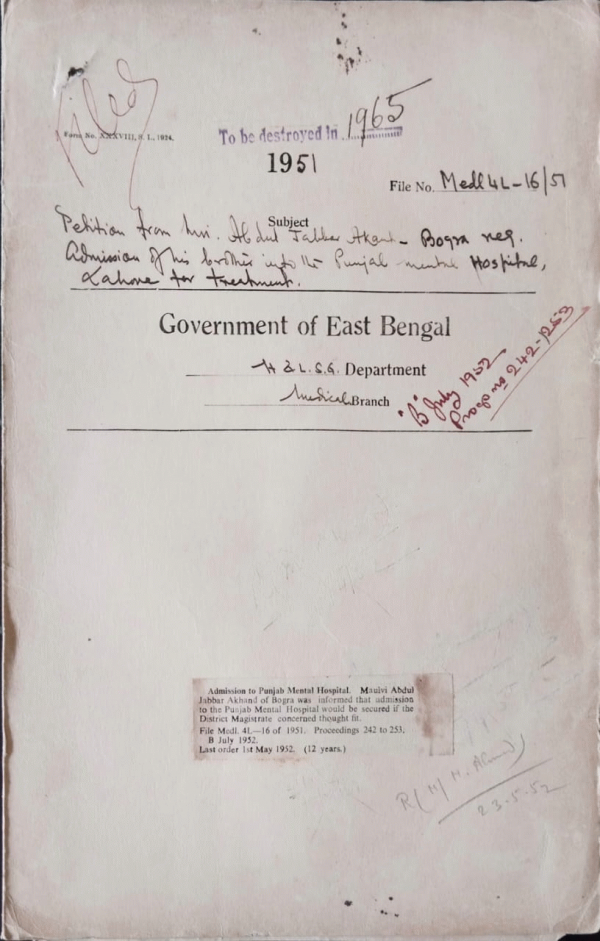 Filed
Form No. XXXVIII, S. L., 1924.
To be destroyed in 1965
1951
File No. Medl 4L-16/51
Subject
Petition from Mvi. Abdul Jabbar Akand - Bogra reg.
Admission of his brother into the Punjab mental Hospital,
Lahore for treatment.
Government of East Bengal
H & L.S.G. Department
Medical Branch
"B" July 1952
Progs no 242-1253
Admission to Punjab Mental Hospital. Maulvi Abdul
Jabbar Akhand of Bogra was informed that admission
to the Punjab Mental Hospital would be secured if the
District Magistrate concerned thought fit.
File Medl. 4L—16 of 1951. Proceedings 242 to 253,
B July 1952.
Last order 1st May 1952. (12 years.)
23-5-52